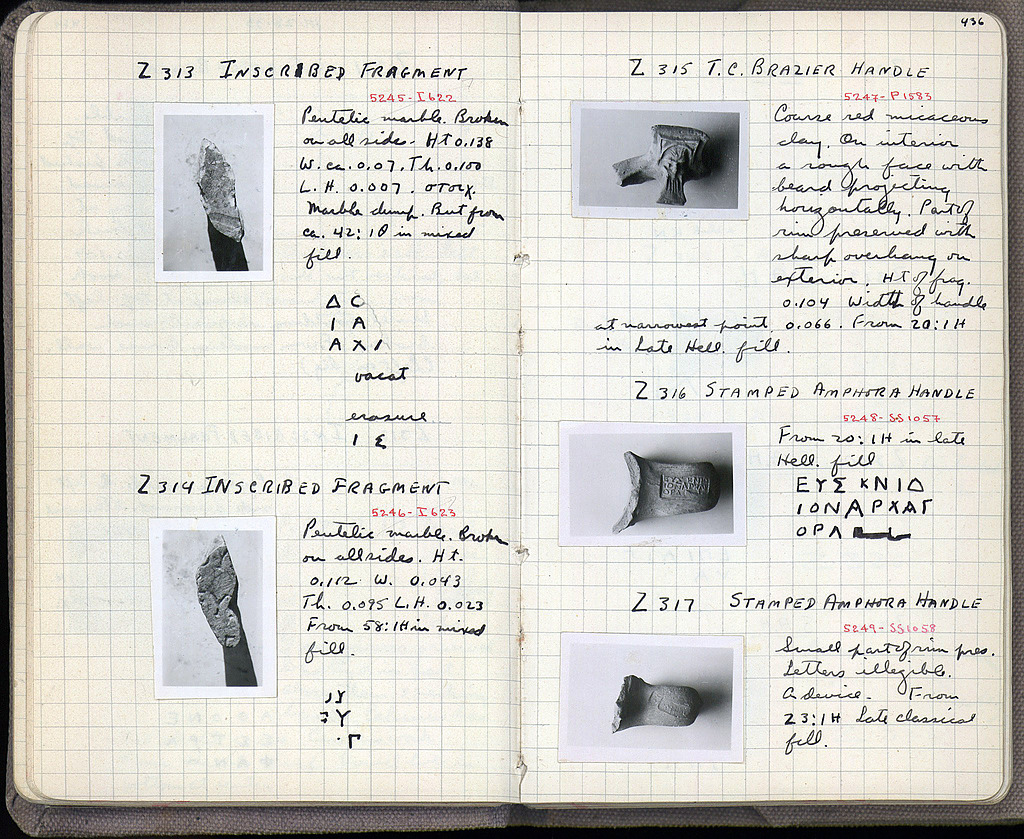 Z 313 INSCRIBED FRAGMENT
5245-I622
Pentelic marble. Broken
on all sides. Ht 0.138
W. ca. 0.07. Th. 0.100
L. H. 0.007. στοιχ.
Marble dump. But from
ca. 42:1Θ in mixed
fill.
Δ C
I A
A X I
vacat
erasure
I Σ
Z 314 INSCRIBED FRAGMENT
5246-I623
Pentelic marble. Broken
on all sides. Ht.
0.112 W. 0.043
Th. 0.095 L.H. 0.023
From 58:1H in mixed
fill.
Υ
Γ
436
Z 315 T.C. BRAZIER HANDLE
5247-P1583
Coarse red micaceous
clay. On interior
a rough face with
beard projecting
horizontally. Part of
rim preserved with
sharp overhang on
exterior. Ht of frag.
0.104 Width of handle
at narrowest point, 0.066. From 20:1H
in Late Hell. fill.
Z 316 STAMPED AMPHORA HANDLE
5248-SS1057
From 20:1H in late
Hell. fill
ΕΥΣ ΚΝΙΔ
ΙΟΝΑΡΧΑΓ
ΟΡΑ
Z 317 STAMPED AMPHORA HANDLE
5249-SS1058
Small part of rim pres.
Letters illegible.
A device. From
23:1H Late classical
fill.